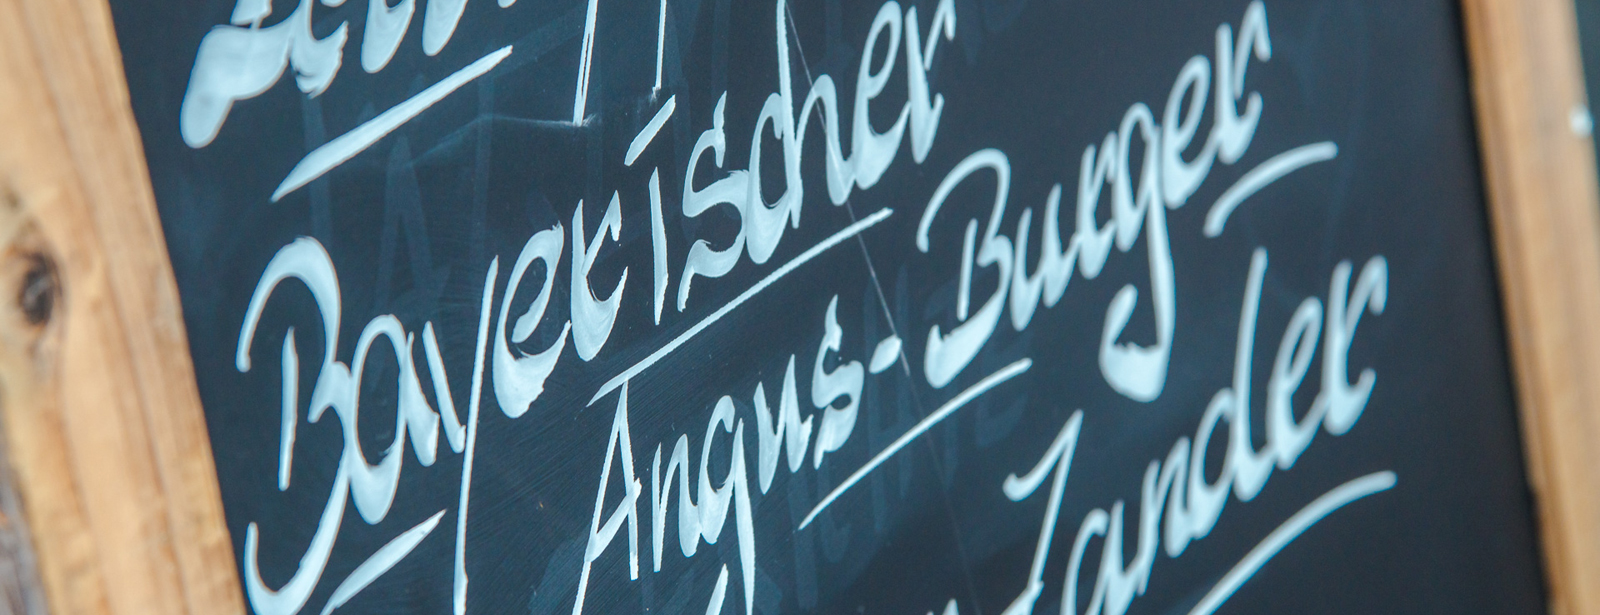 Bayerischer
Angus-Burger
Zander